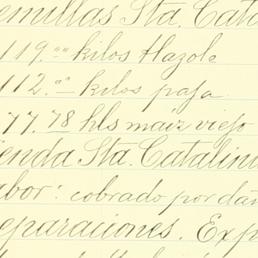 emillas Sta. Cata
119.°° kilos tlazole
112.°° kilos paja
77.78 hls maiz viejo
ienda Sta. Catalin
abor: cobrado por dañ
eparaciones. Exp